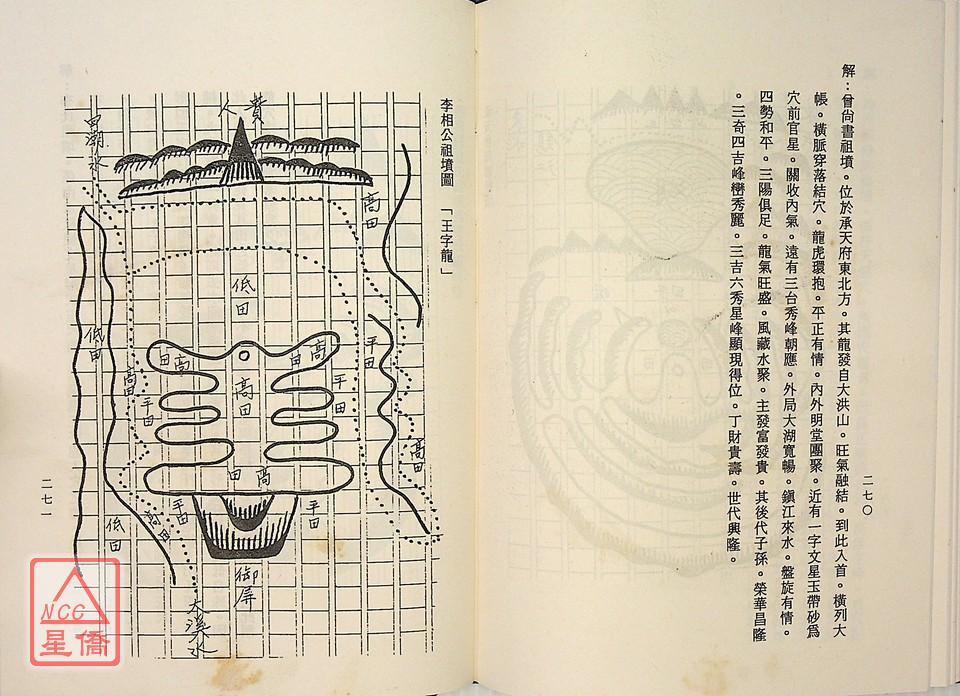 解：曾尚書祖墳。位於承天府東北方。其龍發自大洪山。旺氣融結。到此入首。橫列大
帳。橫脈穿落結穴。龍虎環抱。平正有情。內外明堂團聚。近有一字文星玉帶砂爲
穴前官星。關收內氣。遠有三台秀峰朝應。外局大湖寬暢。鎭江來水。盤旋有情。
四勢和平。三陽俱足。龍氣旺盛。風藏水聚。主發富發貴。其後代子孫。榮華昌隆
。三奇四吉峰巒秀麗。三吉六秀星峰顯現得位。丁財貴壽。世代興隆。
二七〇
李相公祖墳圖 「王字龍」
貴人
高田
低田
平田
高田
高田
高田
高田
平田
低田
高田
平田
高田
平田
平田
高田
低田
御屏
大溪水
二七一
NCC
星僑